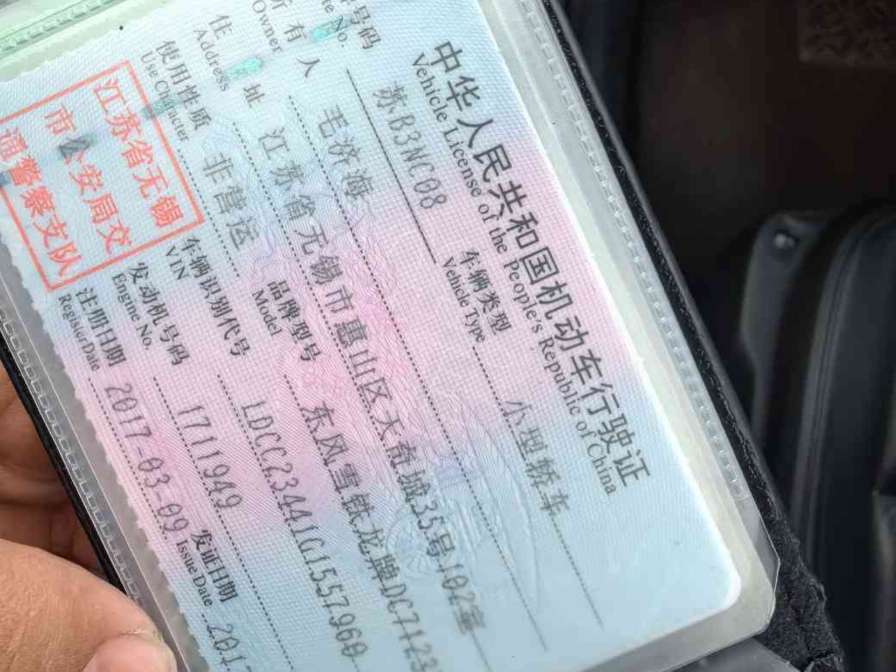 中华人民共和国机动车行驶证
Vehicle License of the People's Republic of China
号码 苏B3NC08 车辆类型 小型轿车
No. Vehicle Type
所有人 毛济海
Owner
住址 江苏省无锡市惠山区天奇城35号102室
Address
使用性质 非营运 品牌型号 东风雪铁龙牌DC7123
Use Character Model
江苏省无锡
市公安局交
通警察支队
车辆识别代号 LDCC23441G1557960
VIN
发动机号码 1711949
Engine No.
注册日期 2017-03-09 发证日期 201
Register Date Issue Date